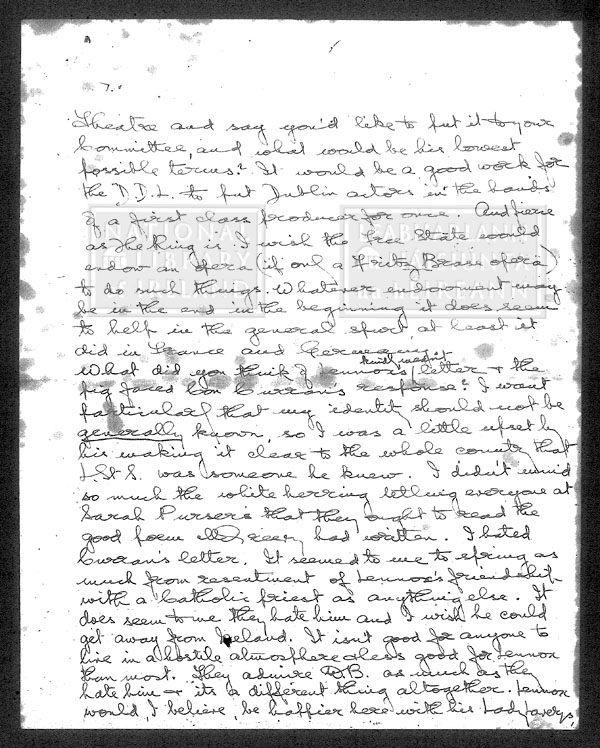 7.
Theatre and say you'd like to put it to your
Committee, and what would be his lowest
possible terms? It would be a good work for
the D.D.L. to put Dublin actors in the hands
of a first class producer for once. And fierce
as the thing is I wish the Free State would
endow an opera (if only a Fritz Brase opera)
to do such things. Whatever endowment may
be in the end in the beginning it does seem
to help in the general spurt, at least it
did in France and Germany.
What did you think of Lennox's kindly meant letter & the
pig faced Con Curran's response? I want
particular that my identity should not be
generally known, so I was a little upset by
his making it clear to the whole country that
L.St.S. was someone he knew. I didn't mind
so much the white herring telling everyone at
Sarah Purser's that they ought to read the
good poem had written. I hated
Curran's letter. It seemed to me to spring as
much from resentment of Lennox's friendship
with a Catholic priest as anything else. It
does seem to me they hate him and I wish he could
get away from Ireland. It isn't good for anyone to
live in a hostile atmosphere & less good for Lennox
than most. They admire W.B. as much as they
hate him & its a different thing altogether. Lennox
would, I believe, be happier here with his Lady Laverys,
NATIONAL LIBRARY OF IRELAND
LEABHARLANN NÁISIÚNTA NA hÉIREANN